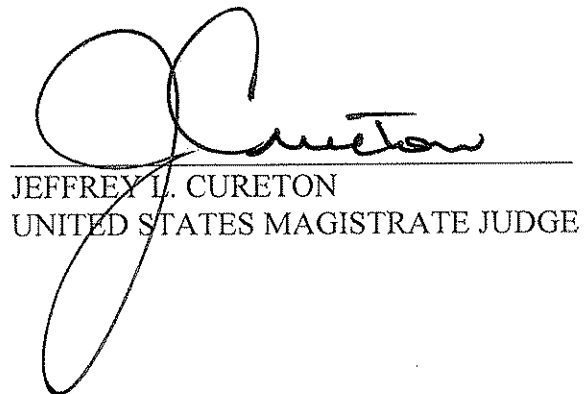 J Cureton
JEFFREY L. CURETON
UNITED STATES MAGISTRATE JUDGE